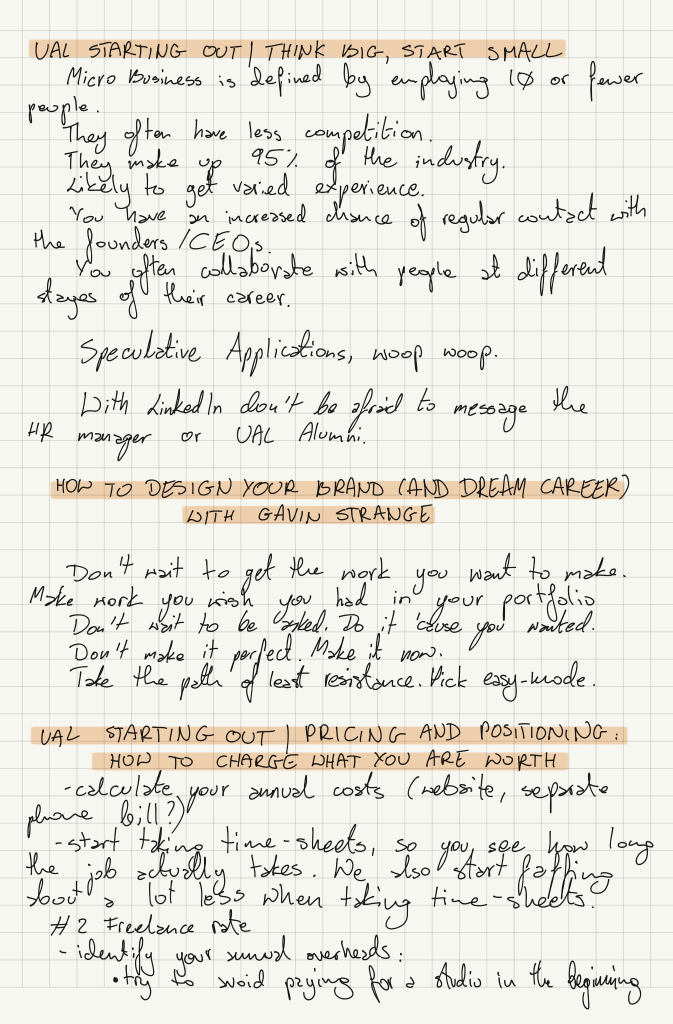 UAL STARTING OUT | THINK BIG, START SMALL
Micro Business is defined by employing 10 or fewer
people.
They often have less competition.
They make up 95% of the industry.
Likely to get varied experience.
You have an increased chance of regular contact with
the founders/CEOs.
You often collaborate with people at different
stages of their career.
Speculative Applications, woop woop.
With LinkedIn don't be afraid to message the
HR manager or UAL Alumni.
HOW TO DESIGN YOUR BRAND (AND DREAM CAREER)
WITH GAVIN STRANGE
Don't wait to get the work you want to make.
Make work you wish you had in your portfolio
Don't wait to be asked. Do it 'cause you wanted.
Don't make it perfect. Make it now.
Take the path of least resistance. Pick easy-mode.
UAL STARTING OUT | PRICING AND POSITIONING:
HOW TO CHARGE WHAT YOU ARE WORTH
- calculate your annual costs (website, separate
phone bill?)
- start taking time-sheets, so you see how long
the job actually takes. We also start faffing
about a lot less when taking time-sheets.
#2 Freelance rate
- identify your annual overheads:
• try to avoid paying for a studio in the beginning